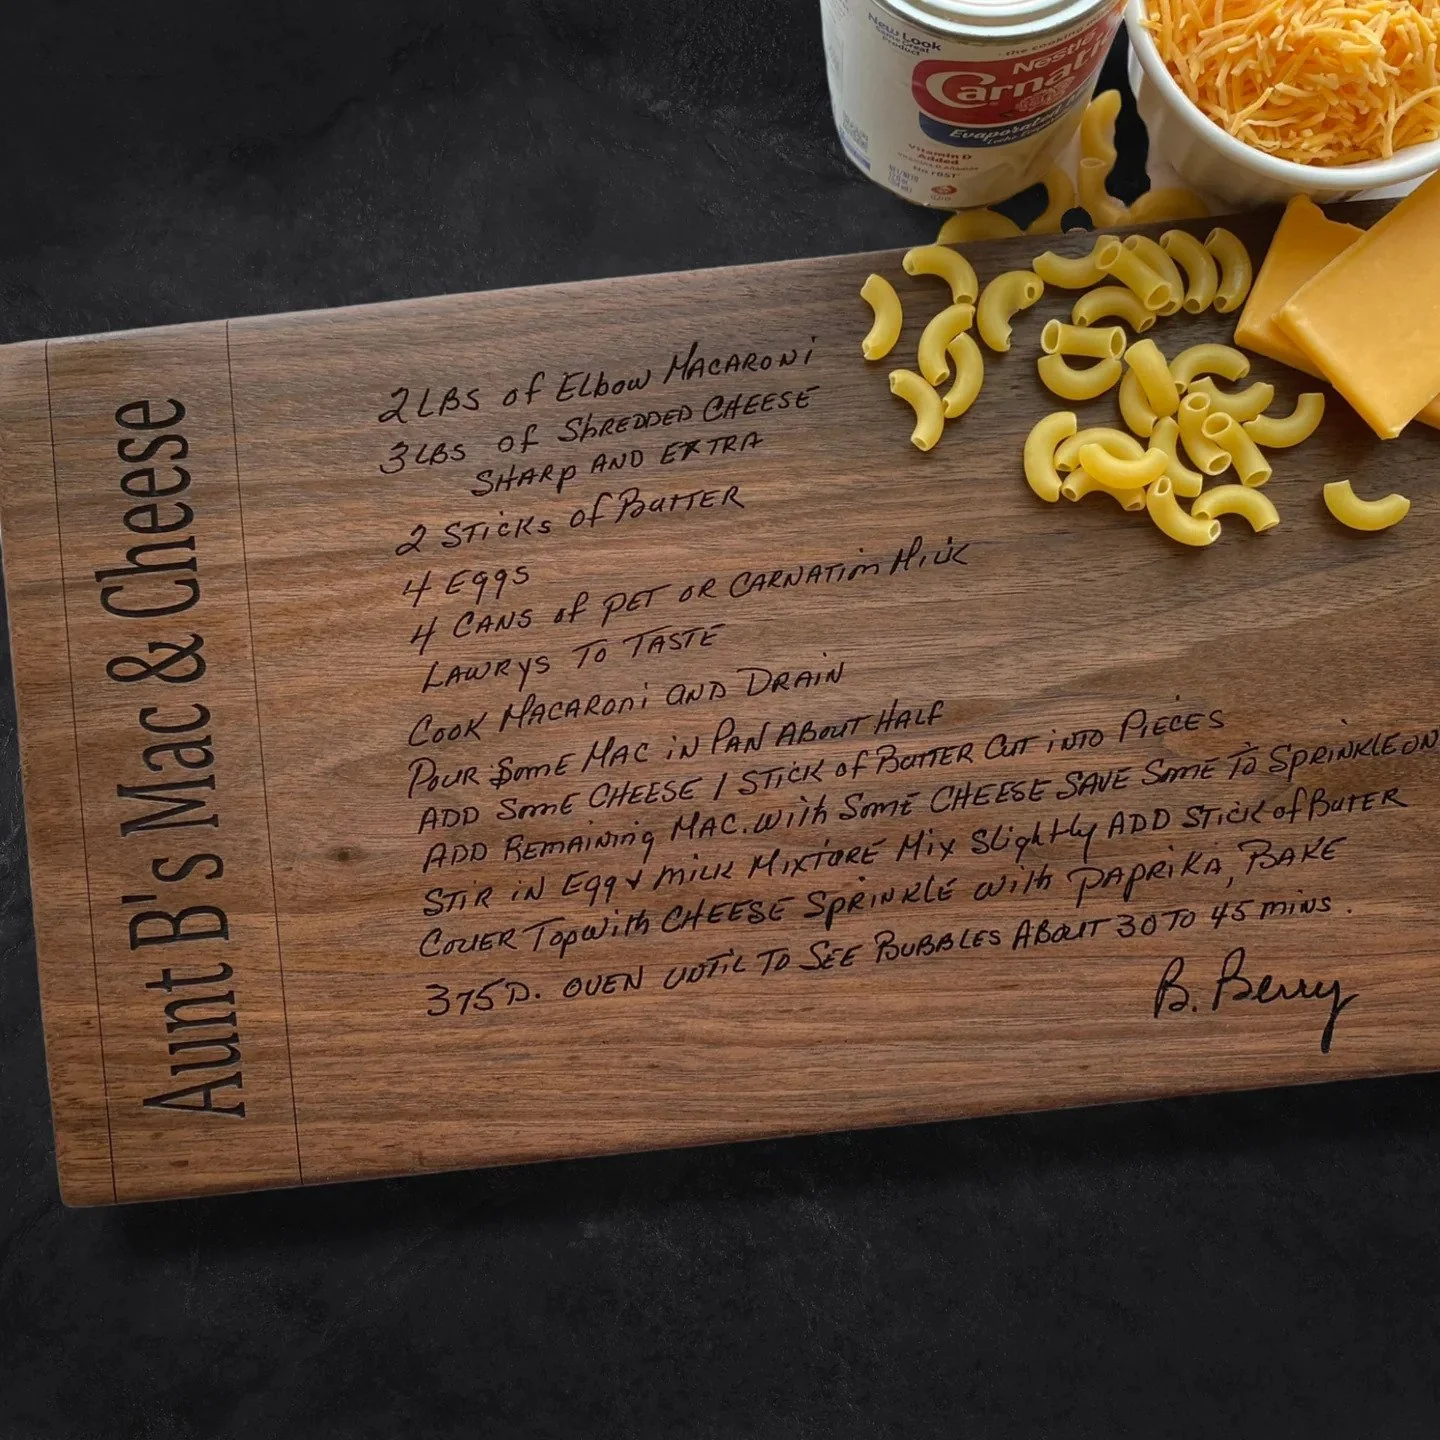 New Look
Same Great
Product
the cooking
Nestlé
Carnati
Evaporated
Vitamin D
Added
Aunt B's Mac & Cheese
2 LBS of Elbow MACARONi
3 LBS of ShREDDED CHEESE
SHARP AND EXTRA
2 STicKs of BuTTER
4 Eggs
4 CANS of PET OR CARNATiON MiLK
LAWRYS TO TASTE
COOK MACARONi AND DRAiN
POUR SOME MAC iN PAN ABOUT HALF
ADD SOME CHEESE 1 STiCK of BUTTER CUT iNTO PiECES
ADD REMAiNiNg MAC. With SOME CHEESE SAVE SOME TO SPRiNKLE ON
STiR iN Egg & MiLK MiXTURE MiX SLightLy ADD STiCK of BUTTER
COVER TOP With CHEESE SPRiNKLE With PAPRiKA, BAKE
375 D. OVEN UNTiL TO SEE BUBBLES ABOUT 30 TO 45 MiNS.
B. Berry